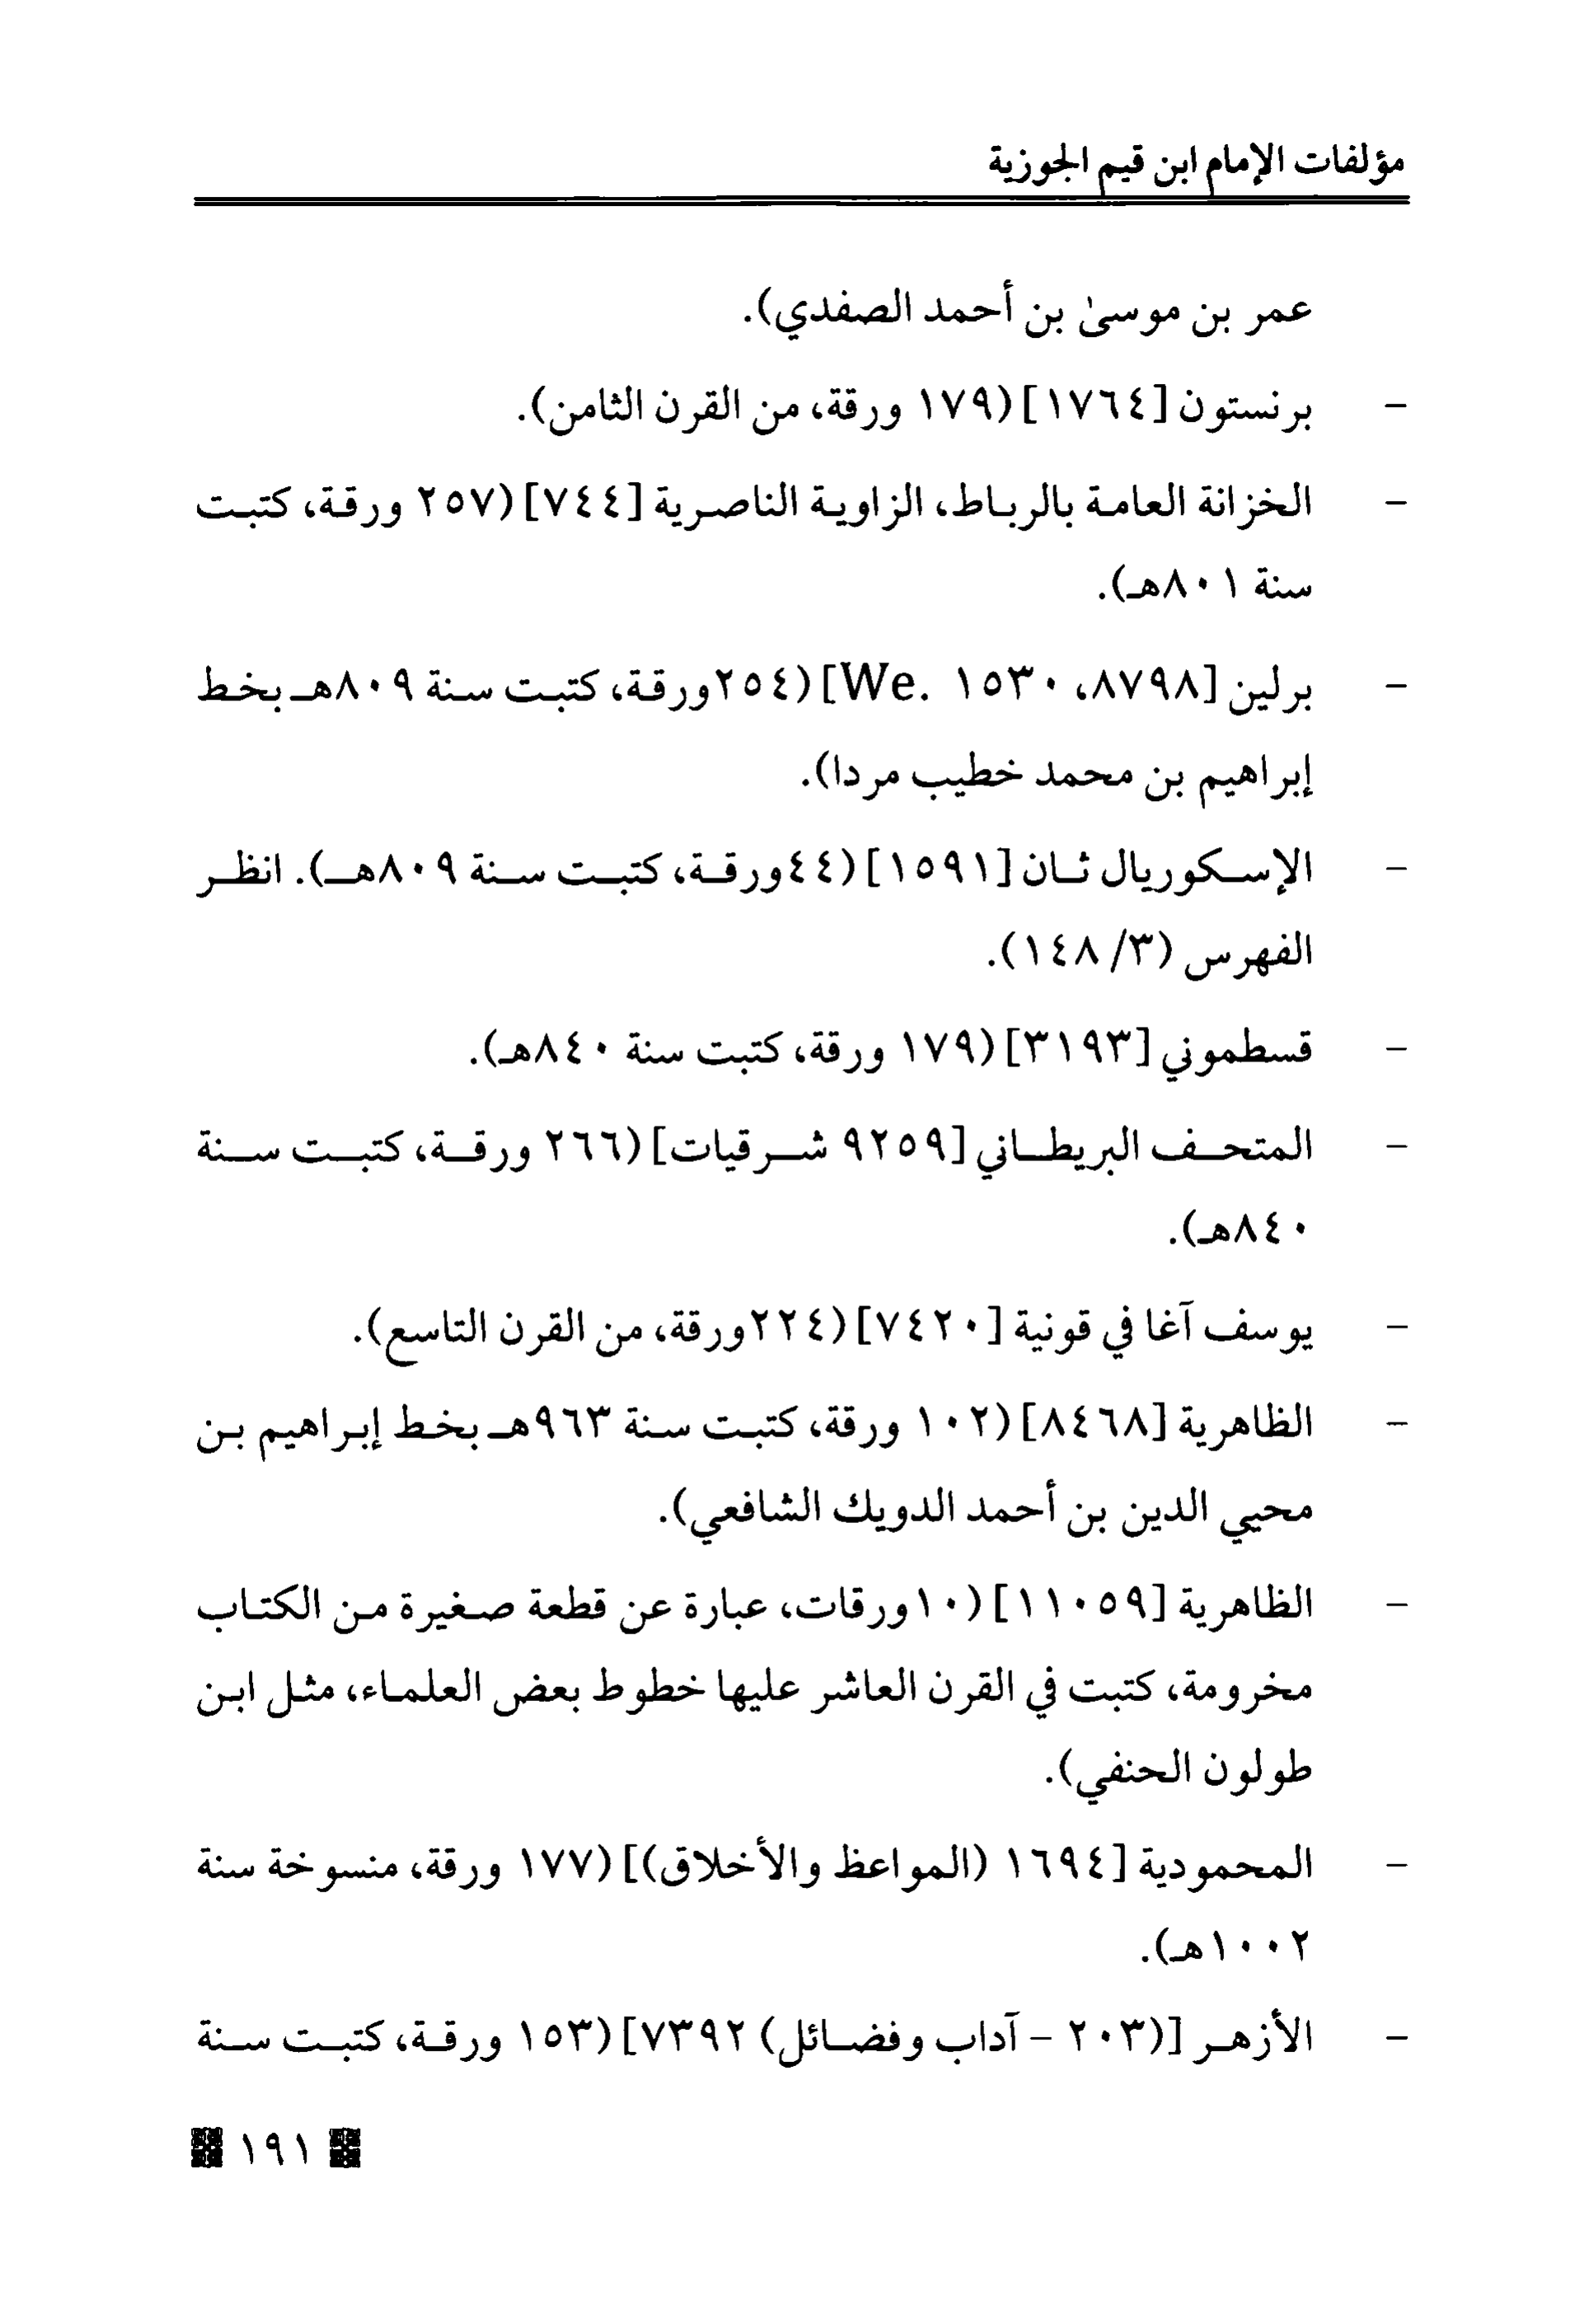 مؤلفات الإمام ابن قيم الجوزية
عمر بن موسىٰ بن أحمد الصفدي).
- برنستون [١٧٦٤] (١٧٩ ورقة، من القرن الثامن).
- الخزانة العامة بالرباط، الزاوية الناصرية [٧٤٤] (٢٥٧ ورقة، كتبت
سنة ٨٠١هـ).
- برلين [٨٧٩٨، We. ١٥٣٠] (٢٥٤ورقة، كتبت سنة ٨٠٩هـ بخط
إبراهيم بن محمد خطيب مردا).
- الإسكوريال ثان [١٥٩١] (٤٤ورقة، كتبت سنة ٨٠٩هـ). انظر
الفهرس (٣/ ١٤٨).
- قسطموني [٣١٩٣] (١٧٩ ورقة، كتبت سنة ٨٤٠هـ).
- المتحف البريطاني [٩٢٥٩ شرقيات] (٢٦٦ ورقة، كتبت سنة
٨٤٠هـ).
- يوسف آغا في قونية [٧٤٢٠] (٢٢٤ورقة، من القرن التاسع).
- الظاهرية [٨٤٦٨] (١٠٢ ورقة، كتبت سنة ٩٦٣هـ بخط إبراهيم بن
محيي الدين بن أحمد الدويك الشافعي).
- الظاهرية [١١٠٥٩] (١٠ورقات، عبارة عن قطعة صغيرة من الكتاب
مخرومة، كتبت في القرن العاشر عليها خطوط بعض العلماء، مثل ابن
طولون الحنفي).
- المحمودية [١٦٩٤ (المواعظ والأخلاق)] (١٧٧ ورقة، منسوخة سنة
١٠٠٢هـ).
- الأزهر [(٢٠٣ - آداب وفضائل) ٧٣٩٢] (١٥٣ ورقة، كتبت سنة
١٩١